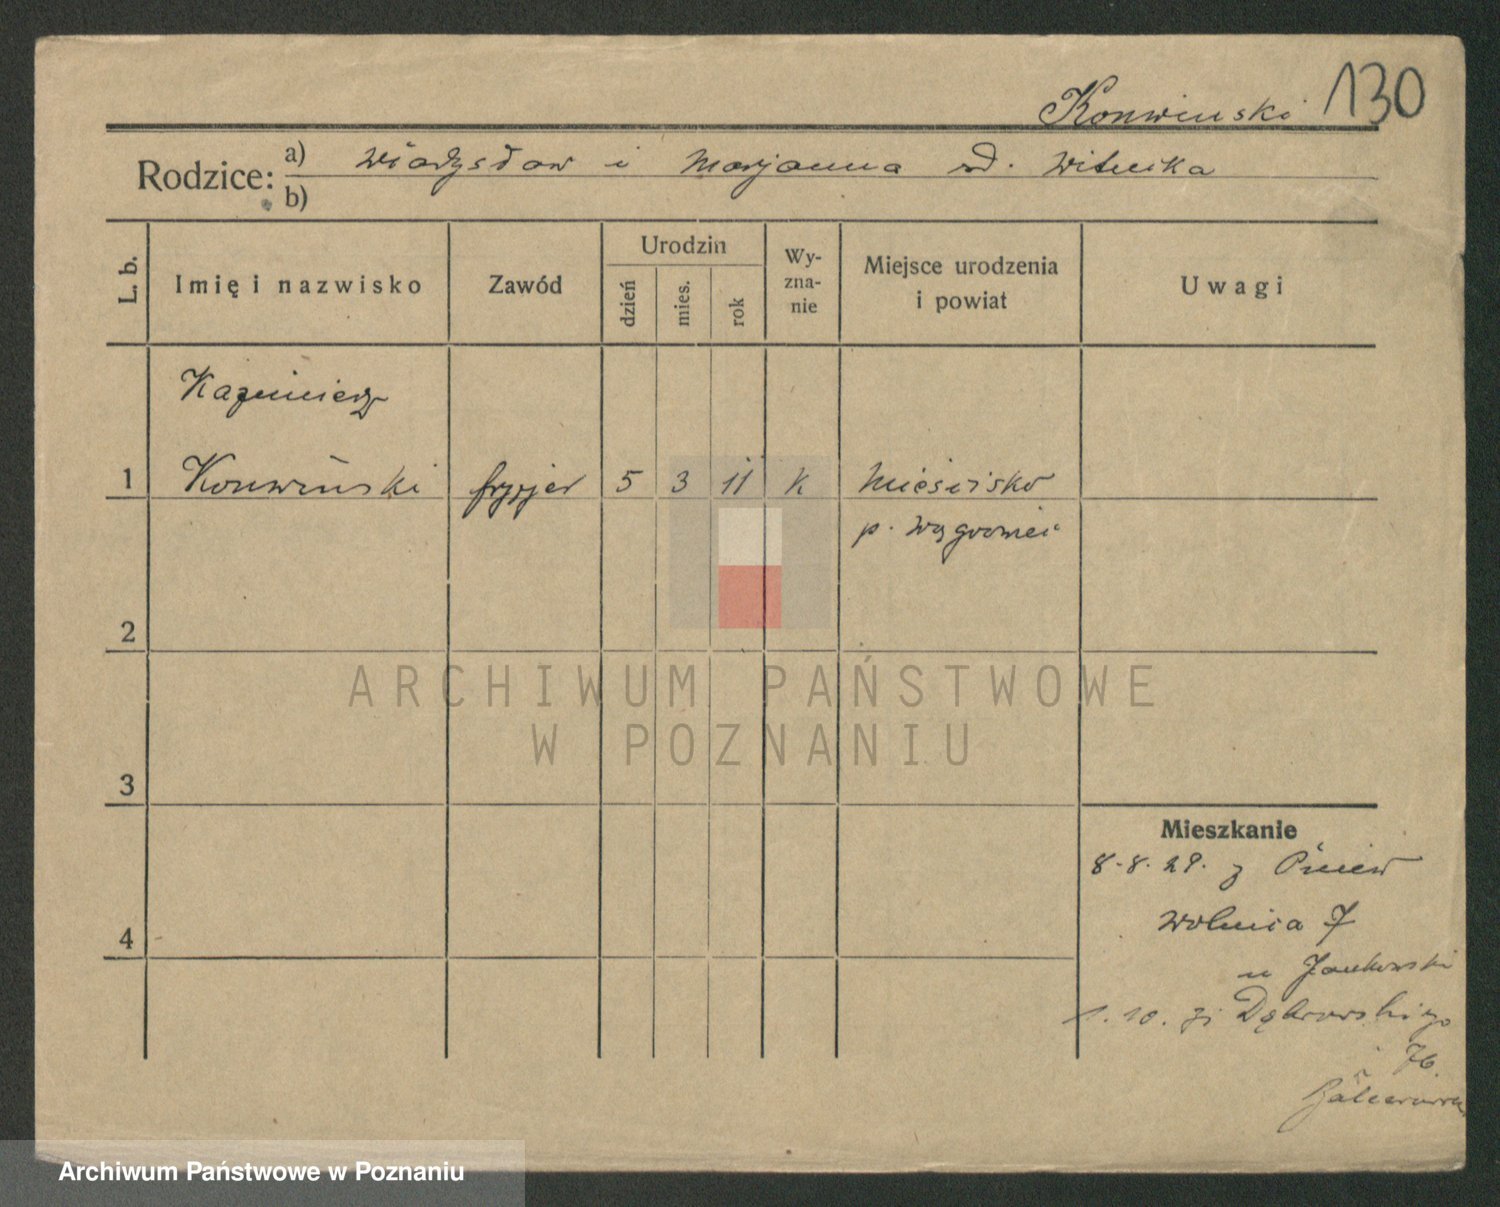 Konwinski 130
Rodzice: a) Władysław i Marjanna rd. Witucka
b)
L. b. Imię i nazwisko Zawód Urodzin dzień mies. rok Wy-zna-nie Miejsce urodzenia i powiat Uwagi
Kazimierz
1 Konwiński fryzjer 5 3 11 k Mieścisko
p. Wągrowiec
2
ARCHIWUM PAŃSTWOWE
W POZNANIU
3
Mieszkanie
8.8.29. z Pniew
4 Wolnica 7
u Jankowski
1.10. Dąbrowskiego
76.
Archiwum Państwowe w Poznaniu